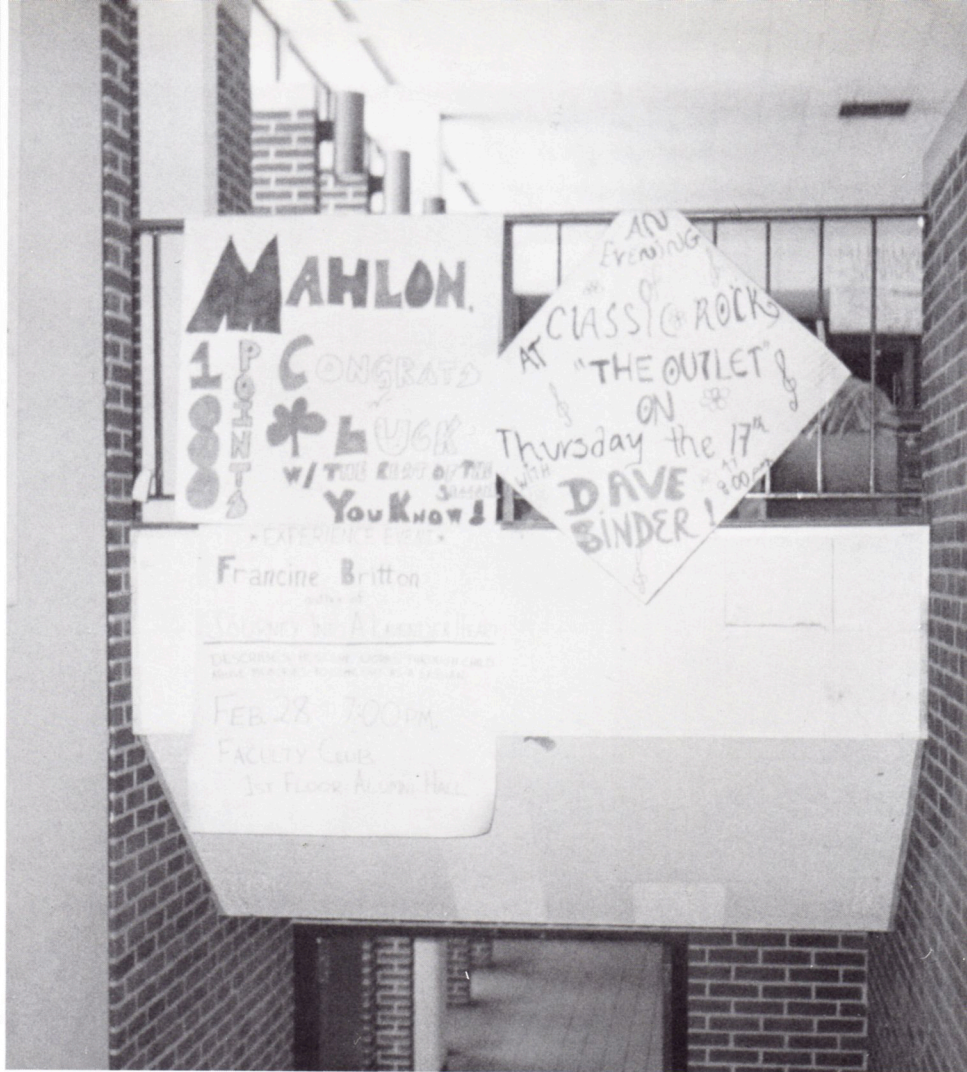 MAHLON.
1000
POINTS
CONGRATS
LUCK
W/ THE REST OF THE
SEASON
YOU KNOW!
AN
EVENING
CLASSIC ROCK
AT "THE OUTLET"
ON
Thursday the 17th
WITH
AT
9:00 pm
DAVE
BINDER!
• EXPERIENCE EVENT •
Francine Britton
author of
JOURNEY INTO A
FEB. 28 7:00 PM
FACULTY CLUB
1ST FLOOR ALUMNI HALL